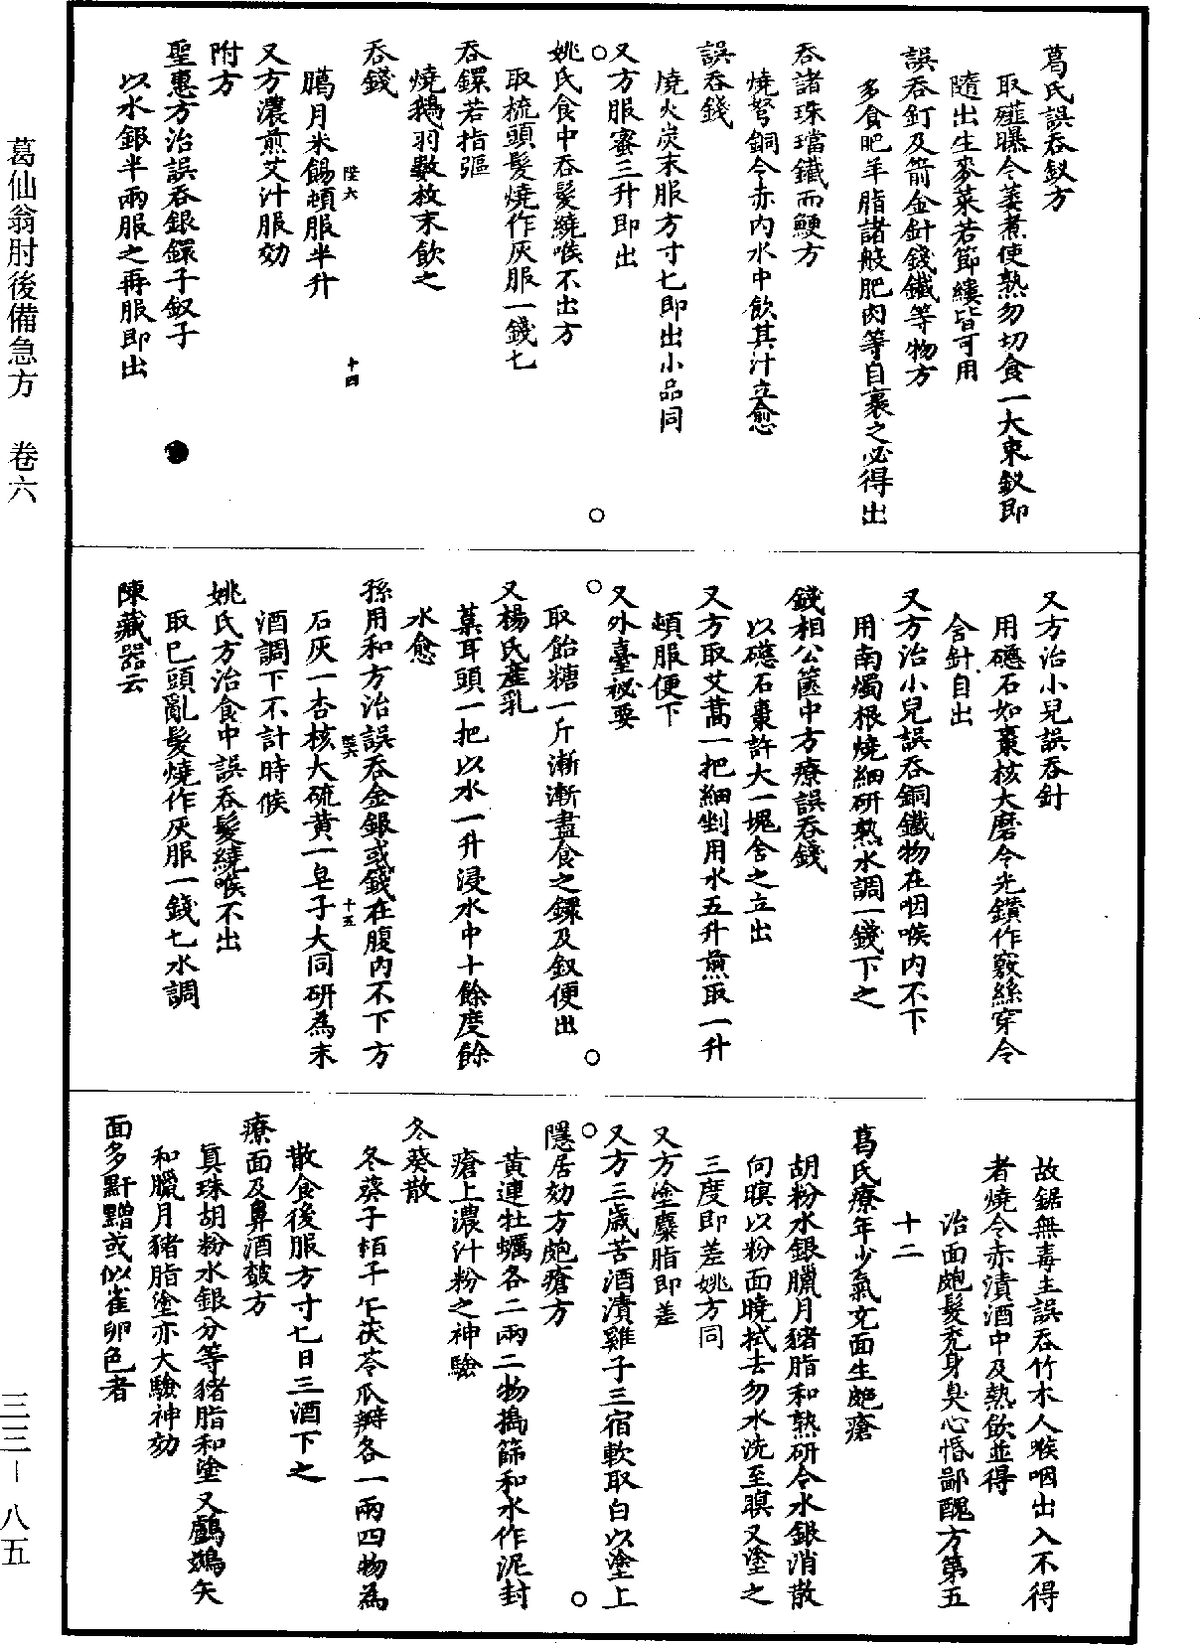 葛仙翁肘後備急方　卷六
三三－八五
葛氏誤吞釵方
取薤曝令萎煮使熟勿切食一大束釵即
隨出生麥菜若節縷皆可用
誤吞釘及箭金針錢鐵等物方
多食肥羊脂諸般肥肉等自裹之必得出
吞諸珠璫鐵而鯁方
燒弩銅令赤內水中飲其汁立愈
誤吞錢
燒火炭末服方寸匕即出小品同
又方服蜜三升即出
姚氏食中吞髮繞喉不出方
取梳頭髮燒作灰服一錢匕
吞鐶若指彄
燒鵝羽數枚末飲之
吞錢
陸六　十四
臈月米餳頓服半升
又方濃煎艾汁服効
附方
聖惠方治誤吞銀鐶子釵子
以水銀半兩服之再服即出
又方治小兒誤吞針
用磁石如棗核大磨令光鑽作竅絲穿令
含針自出
又方治小兒誤吞銅鐵物在咽喉內不下
用南燭根燒細研熟水調一錢下之
錢相公篋中方療誤吞錢
以磁石棗許大一塊含之立出
又方取艾蒿一把細剉用水五升煎取一升
頓服便下
又外臺祕要
取飴糖一斤漸漸盡食之鐶及釵便出
又楊氏產乳
菓耳頭一把以水一升浸水中十餘度餘
水愈
孫用和方治誤吞金銀或錢在腹內不下方
石灰一杏核大硫黃一皂子大同研為末
陸六　十五
酒調下不計時候
姚氏方治食中誤吞髮繞喉不出
取巳頭亂髮燒作灰服一錢匕水調
陳藏器云
故鋸無毒主誤吞竹木人喉咽出入不得
者燒令赤漬酒中及熱飲並得
治面皰髮禿身臭心惛鄙醜方第五
十二
葛氏療年少氣充面生皰瘡
胡粉水銀臘月豬脂和熟研令水銀消散
向暝以粉面曉拭去勿水洗至暝又塗之
三度即差姚方同
又方塗麋脂即差
又方三歲苦酒漬雞子三宿軟取白以塗上
隱居効方皰瘡方
黃連牡蠣各二兩二物搗篩和水作泥封
瘡上濃汁粉之神驗
冬葵散
冬葵子栢子仁茯苓瓜瓣各一兩四物為
散食後服方寸匕日三酒下之
療面及鼻酒皶方
真珠胡粉水銀分等豬脂和塗又鸕鷀矢
和臘月豬脂塗亦大驗神効
面多䵟䵳或似雀卵色者